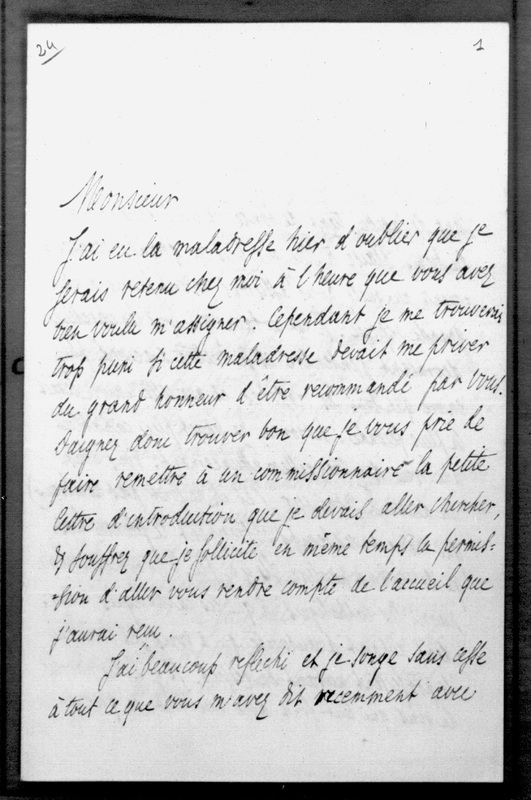 24
1
Monsieur
J'ai eu la maladresse hier d'oublier que je
serais retenu chez moi à l'heure que vous avez
bien voulu m'assigner. Cependant je me trouverais
trop puni si cette maladresse devait me priver
du grand honneur d'être recommandé par vous.
Daignez donc trouver bon que je vous prie de
faire remettre à un commissionnaire la petite
lettre d'introduction que je devais aller chercher,
& souffrez que je sollicite en même temps la permis=
=sion d'aller vous rendre compte de l'accueil que
j'aurai reçu.
J'ai beaucoup reflechi et je songe sans cesse
à tout ce que vous m'avez dit recemment avec